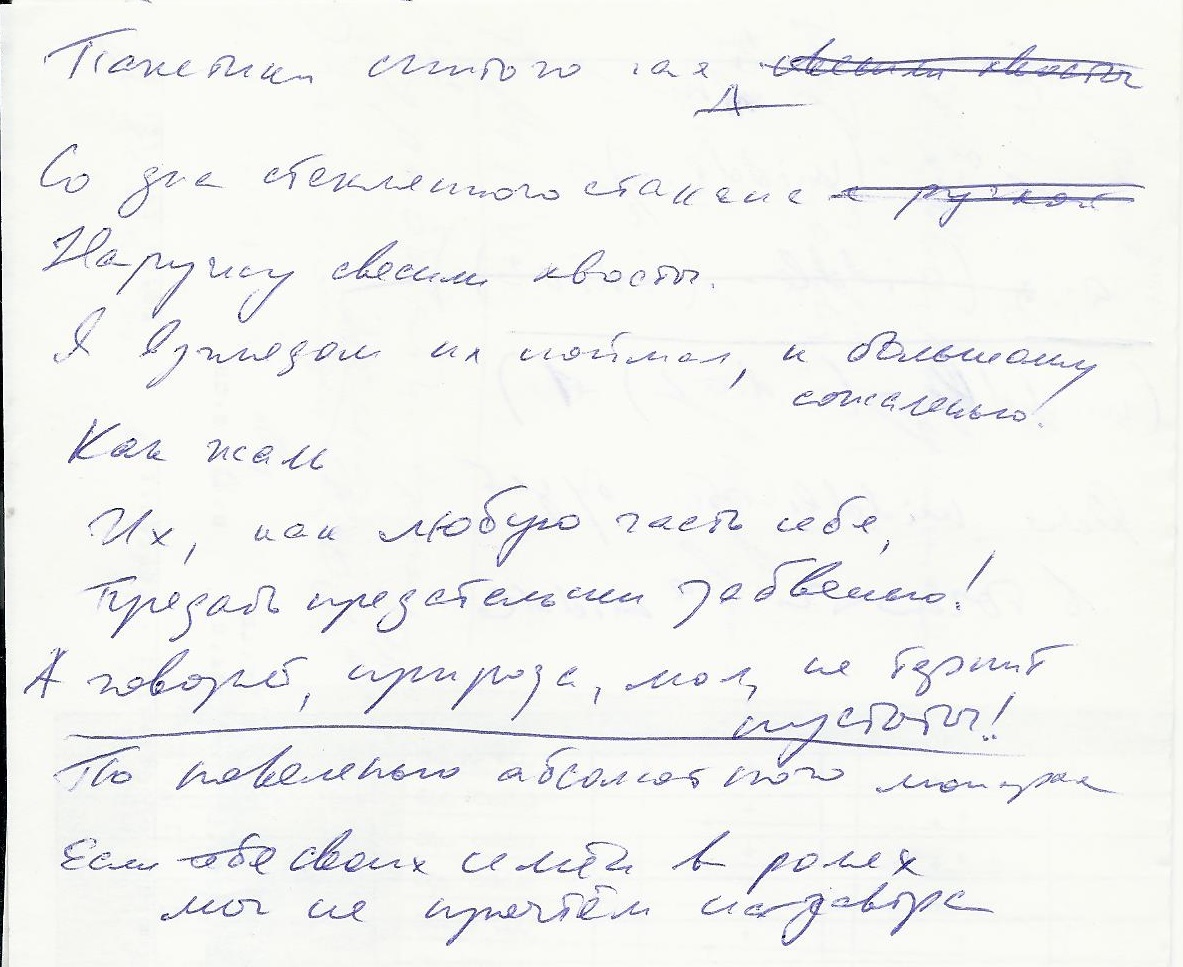 Пакетики спитого чая, свесили хвосты
Д
Со дна стеклянного стакана с ручкой
Наружу свесили хвосты.
Я взглядом их поймал, к большому
сожаленью.
Как жаль
Их, как любую часть себя,
Предать предательски забвенью!
А говорят, природа, мол, не терпит
пустоты!
По повеленью абсолютного монарха
Если себя своих в ролях
мы не прочтём на завтра